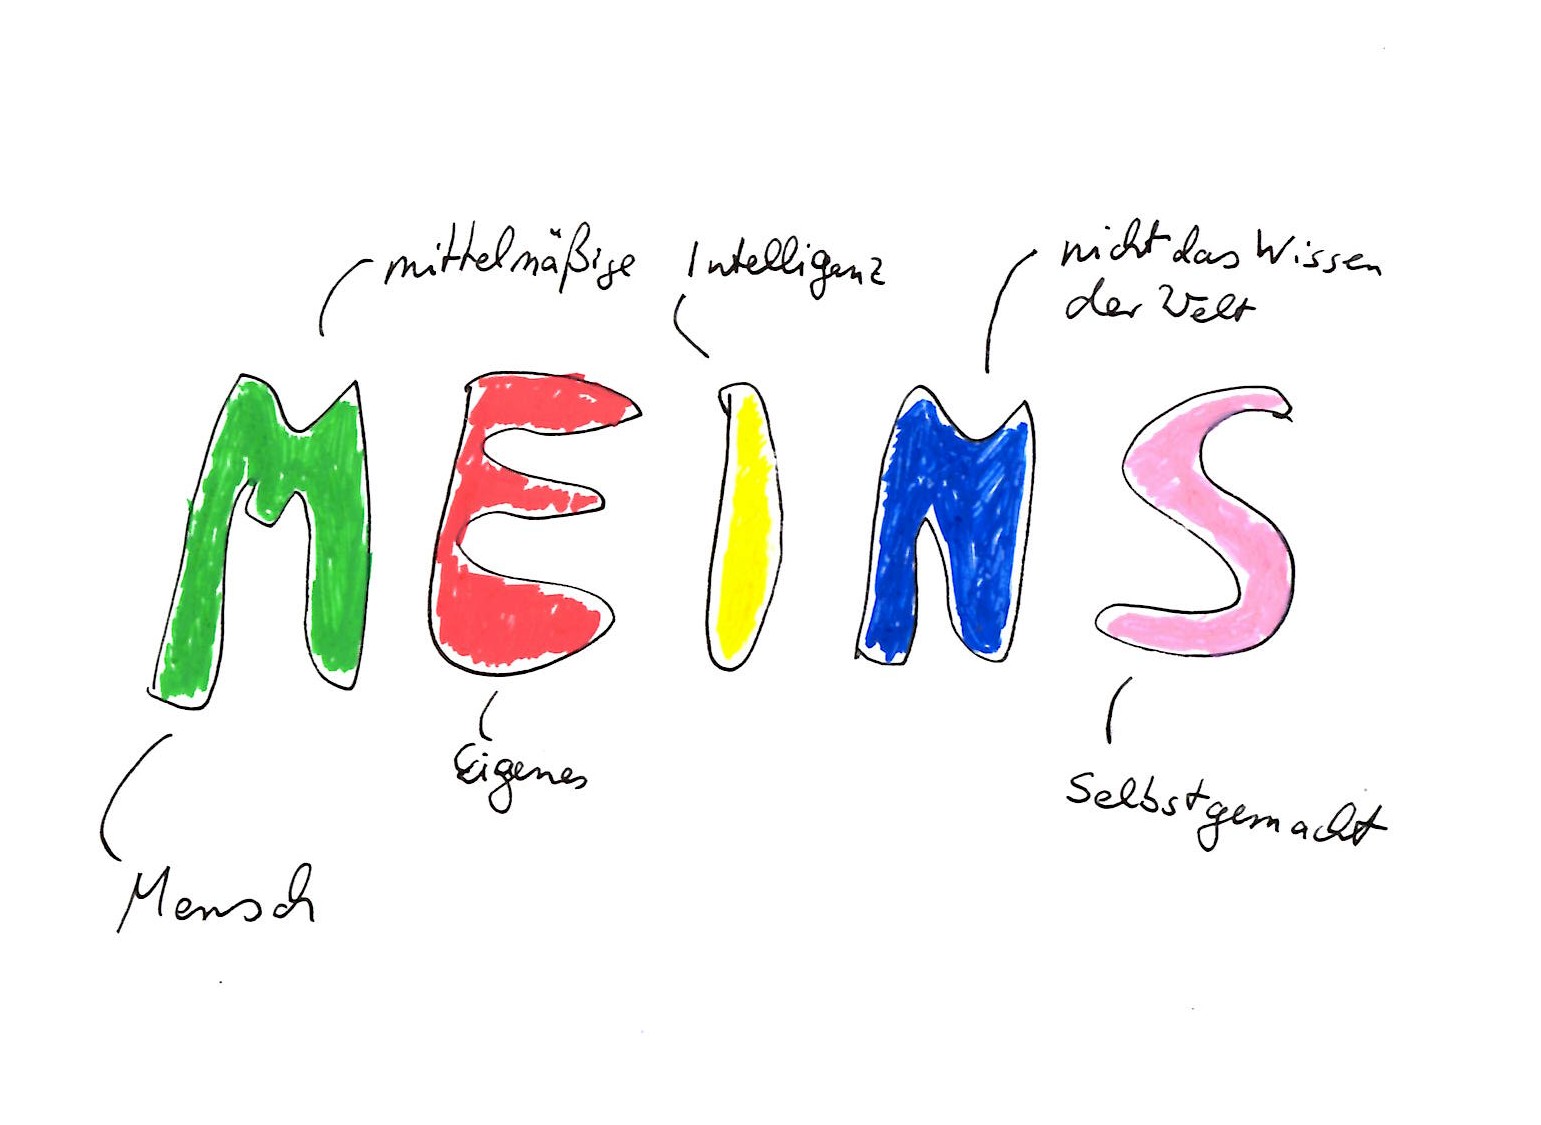 mittelmäßige
Intelligenz
nicht das Wissen
der Welt
MEINS
Eigenes
Selbstgemacht
Mensch